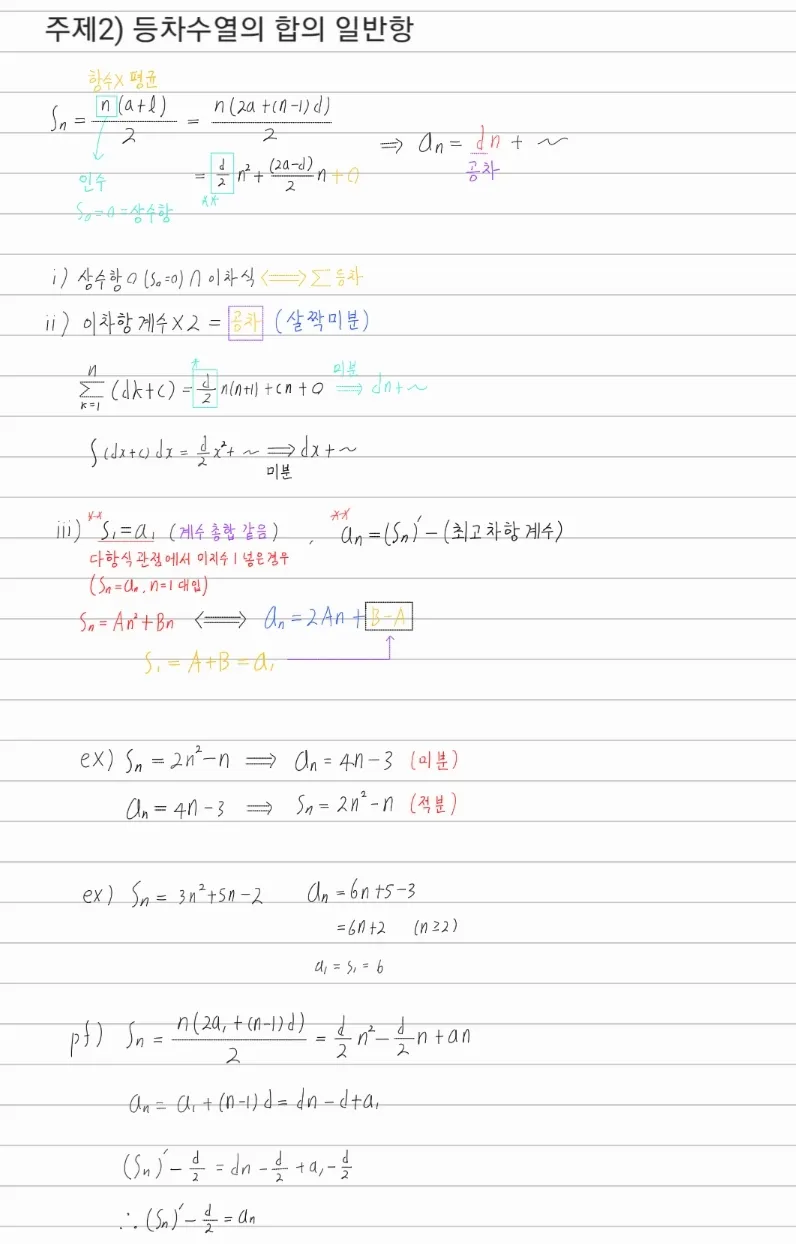 주제2) 등차수열의 합의 일반항
항수X 평균
Sn = n(a+l)/2 = n(2a+(n-1)d)/2 ⇒ an = dn + ~
공차
= d/2 n² + (2a-d)/2 n + 0
인수
S₀=0=상수항
i) 상수항 0 (S₀=0) ∩ 이차식 ⇔ ∑ 등차
ii) 이차항 계수 X 2 = 공차 (살짝 미분)
∑(k=1→n) (dk+c) = d/2 n(n+1) + cn + 0 ⇒ 미분 dn + ~
∫(dx+c) dx = d/2 x² + ~ ⇒ 미분 dx + ~
iii) S₁=a₁ (계수 총합 같음) , an = (Sn)′ - (최고차항 계수)
다항식 관점에서 미지수 1 넣은경우
(Sn=an, n=1 대입)
Sn = An² + Bn ⇔ an = 2An + B-A
S₁ = A+B = a₁
ex) Sn = 2n²-n ⇒ an = 4n-3 (미분)
an = 4n-3 ⇒ Sn = 2n²-n (적분)
ex) Sn = 3n²+5n-2 an = 6n+5-3
= 6n+2 (n≥2)
a₁ = S₁ = 6
pf) Sn = n(2a₁+(n-1)d)/2 = d/2 n² - d/2 n + an
an = a₁ + (n-1)d = dn - d + a₁
(Sn)′ - d/2 = dn - d/2 + a₁ - d/2
∴ (Sn)′ - d/2 = an